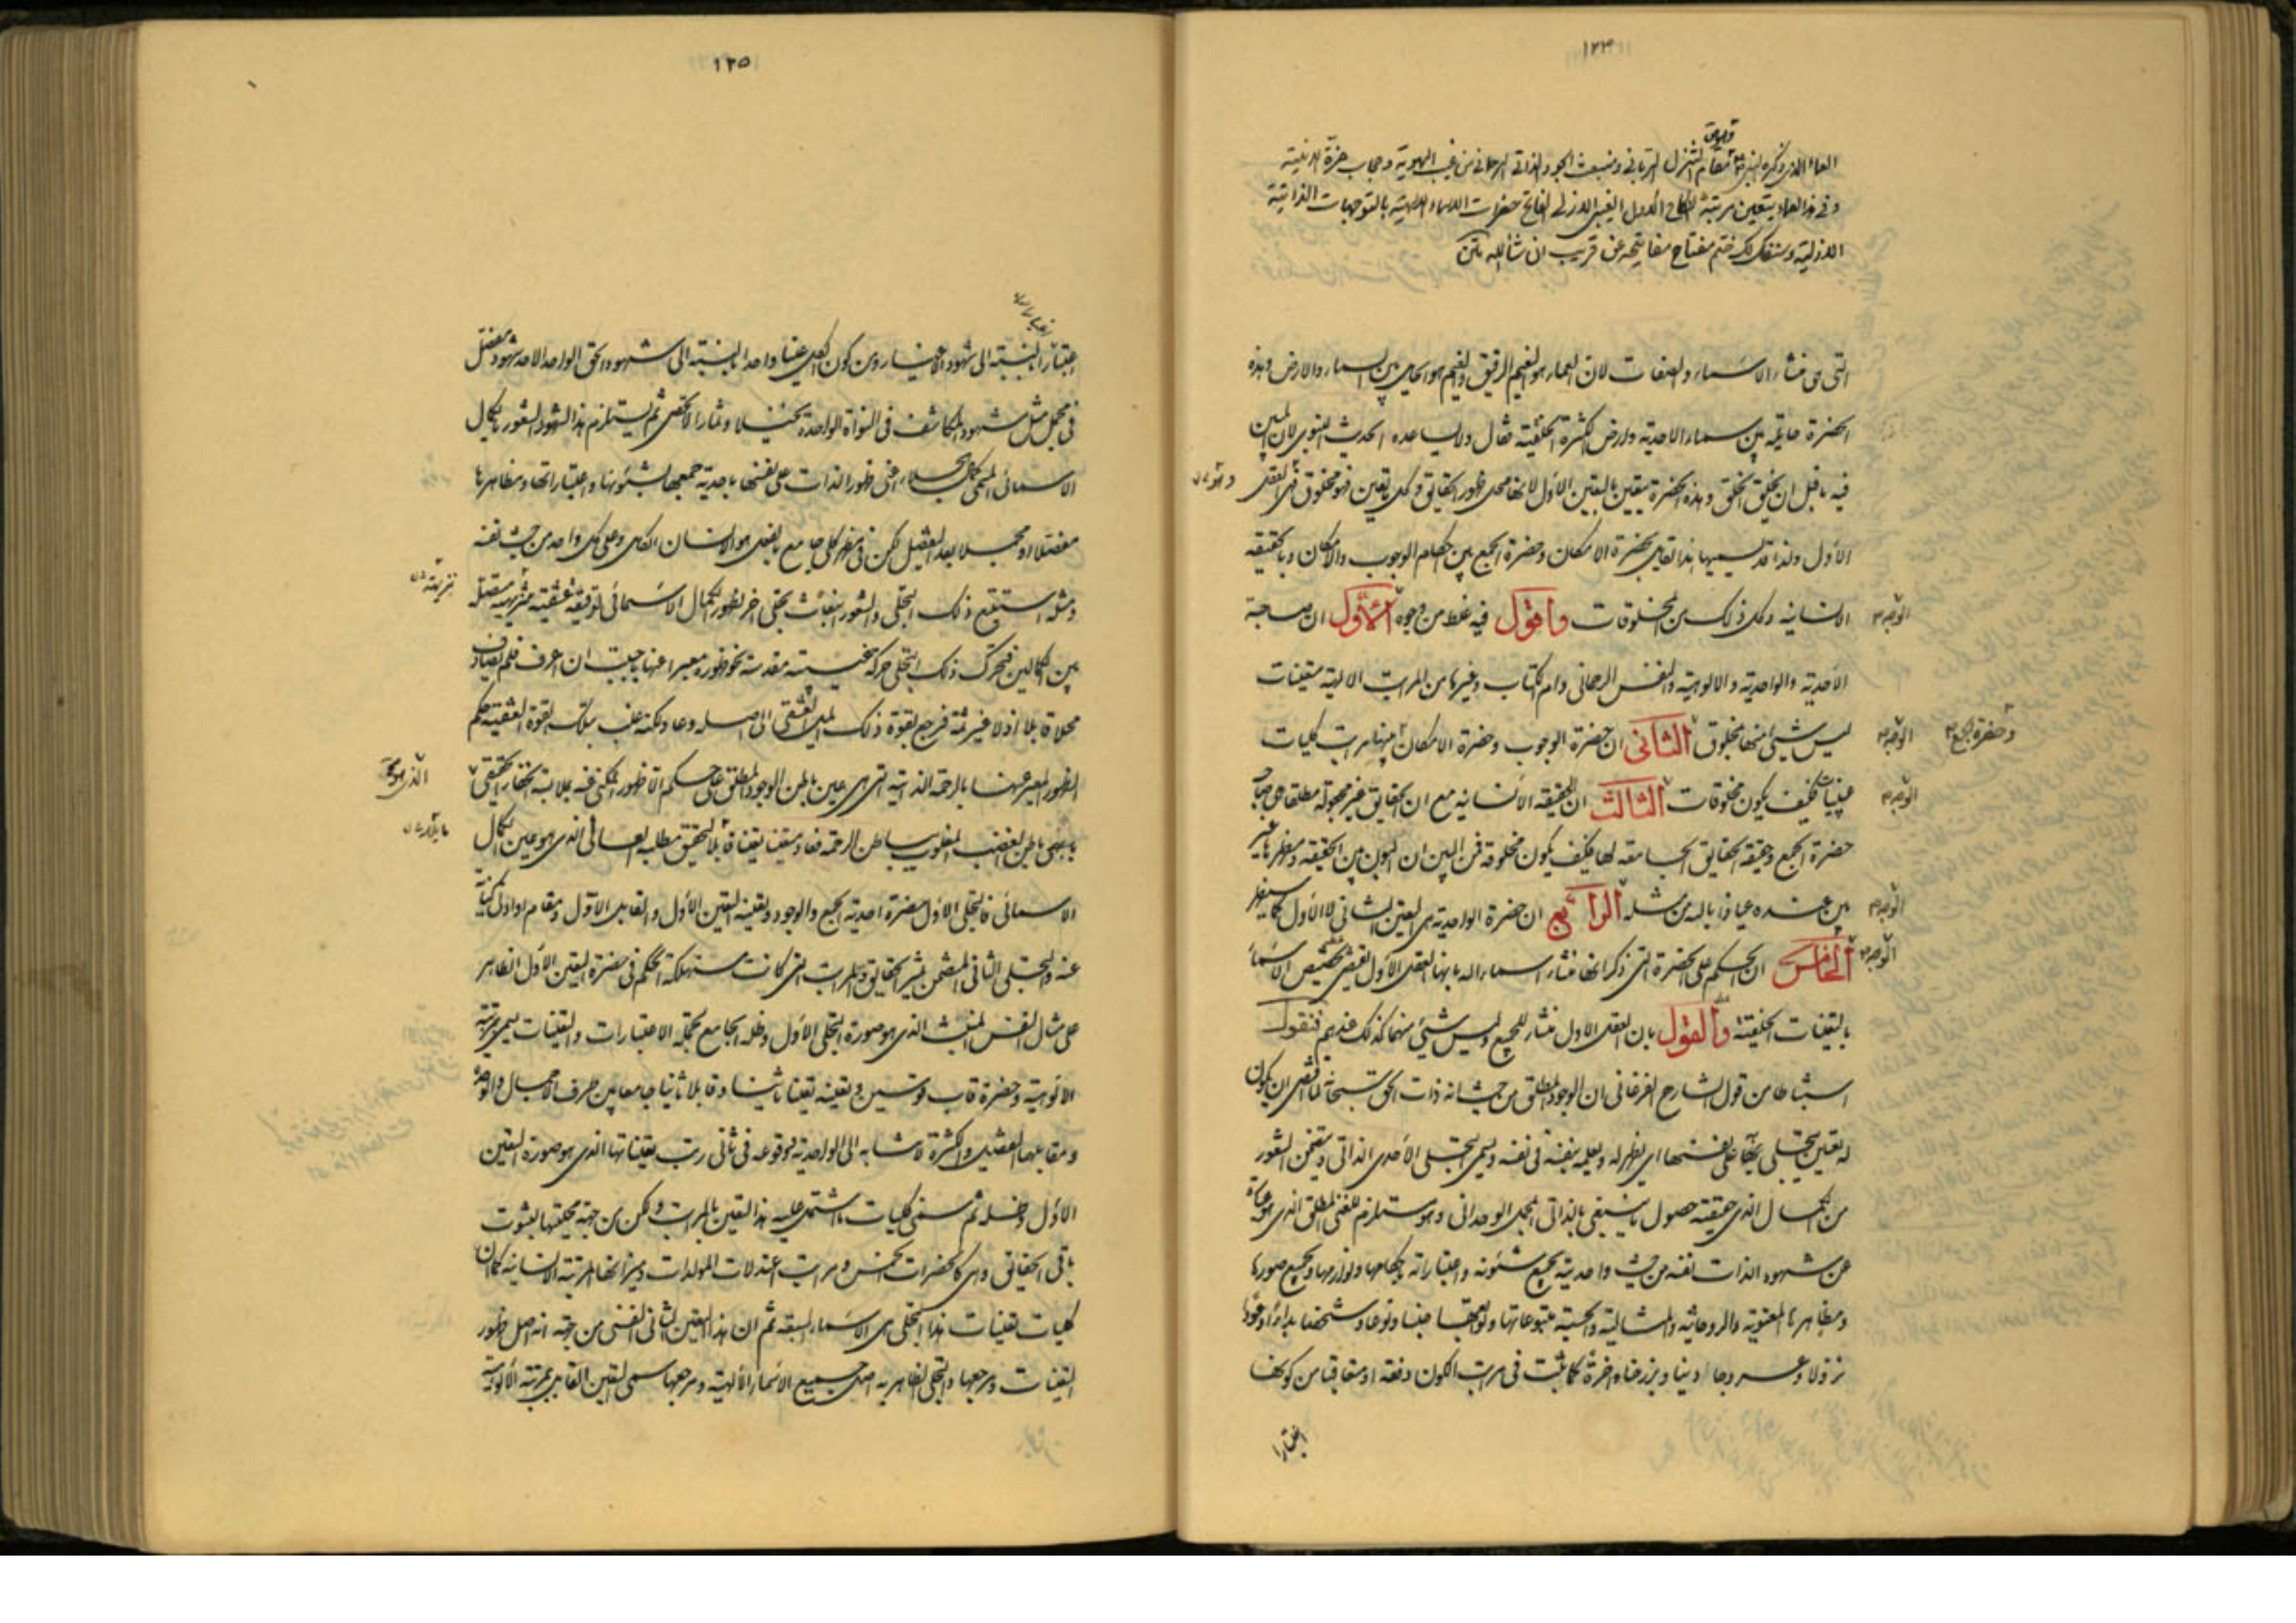 ١٢٤
العماء الذي ذكره النبي مقام التنزل الرباني ومنبعث الجود الذاتي الرحماني من غيب الهوية وحجاب عزة الانية
وفي هذا العماء يتعين مرتبة النكاح الاول الغيبي الازلي الفاتح حضرات الاسماء الالهية بالتوجهات الذاتية
الازلية وسنفك لك ختم مفتاح مفاتيحه عن قريب ان شاء الله
التي هي منشاء الاسماء والصفات لان العماء هو الغيم الرقيق والغيم هو الحايل بين السماء والارض وهذه
الحضرة حايلة بين سماء الاحدية وارض الكثرة الخلقية قال ولا يساعده الحديث النبوي لان
فيه ما قبل ان يخلق الخلق وهذه الحضرة يتعين بالتعين الاول لانها محل ظهور الحقايق وكل ما تعين فهو مخلوق فهي العقل
الاول ولذا قد يسميها هذا القايل بحضرة الامكان وحضرة الجمع بين احكام الوجوب والامكان وبالحقيقة
الانسانية وكل ذلك من المخلوقات واقول فيه غلط من وجوه الاول ان صاحبة
الوجه
الاحدية والواحدية والالوهية والنفس الرحماني وام الكتاب وغيرها من المراتب الالهية تعينات
ليس شيئ منها بمخلوق الثاني ان حضرة الوجوب وحضرة الامكان مراتب كليات
الوجه
وحضرة الجمع
فكيف يكون مخلوقات الثالث ان الحقيقة الانسانية مع ان الحقايق غير مجعولة مطلقا هي صاحبة
الوجه
حضرة الجمع وحقيقة الحقايق الجامعة لها فكيف يكون مخلوقة فمن البين ان البون بين الحقيقة ومظهرها غير
بين عنده عياذا بالله من مثله الرابع ان حضرة الواحدية هي التعين الثاني لا الاول كما سيظهر
الوجه
الخامس ان الحكم على الحضرة التي ذكر انها منشاء اسماء الله بانها العقل الاول يقتضي تخصيص الاسماء
الوجه
بالتعينات الخلقية والقول بان العقل الاول منشاء للجميع وليس شيئ منها كذلك عندهم فنقول
استنباطا من قول الشارح الفرغاني ان الوجود المطلق من حيث انه ذات الحق سبحانه لما اقتضى ان يكون
له تعين يتجلى بها على نفسها اي يظهر له ويعلم بنفسه في نفسه ويسمى التجلي الاحدي الذاتي ويتضمن الشعور
من الكمال الذي حقيقته حصول ما ينبغي بالذاتي المجمل الوحداني وهو مستلزم للغنى المطلق الذي هو عبارة
عن شهود الذات نفسه من حيث واحديته بجميع شئونه واعتباراته باحكامها ولوازمها وبجميع صورها
ومظاهرها المعنوية والروحانية والمثالية والحسية متبوعاتها وتوابعها جنسا ونوعا وشخصا بداء وعودا
نزولا وعروجا دنيا وبرزخا واخرة كما يثبت في مراتب الكون دفعة او متعاقبا من كونها
اعتبارا
١٢٥
اعتبارا بالنسبة الى شهود الاغيار ومن كون الكل عينا واحدا بالنسبة الى شهود الحق الواحد الاحد شهود مفصل
في مجمل مثل شهود المكاشف في النواة الواحدة نخيلا وثمارا لا تحصى ثم يستلزم هذا الشهود الشعور بالكمال
الاسمائي المسمى بكمال الجلاء اعني ظهور الذات على نفسها باحدية جمعها بشئونها واعتباراتها ومظاهرها
مفصلا او مجملا بعد التفصيل لكن في مظهر كلي جامع بالفعل هو الانسان الكامل وعلى كل واحد من حيث نفسه
ومثله استتبع ذلك التجلي والشعور انبعاث تجلي اخر لظهور الكمال الاسمائي لرقيقة عشقية متصلة
بين الكمالين فتحرك ذلك التجلي حركة غيبية مقدسة نحو ظهوره معبرا عنها باحببت ان اعرف فلم يصادف
محلا قابلا اذ لا غير ثمة فرجع بقوة ذلك الميل العشقي الى اصله وعاد لكنه غلب بتلك القوة العشقية حكم
الظهور المعبر عنها بالرحمة الذاتية التي هي عين باطن الوجود المطلق على حكم الاظهور المكنى عنه بملابة الخفاء الحقيقي
الذي هو
باطن الغضب المغلوب بباطن الرحمة فعاد متعينا تعينا قابلا لتحقيق مطلبه العالي الذي هو عين الكمال
الاسمائي فالتجلي الاول حضرة احدية الجمع والوجود وتعينه التعين الاول والقابل الاول ومقام او ادنى كناية
عنه والتجلي الثاني المتضمن لتميز الحقايق والمراتب التي كانت مستهلكة الحكم في حضرة التعين الاول الظاهر
على مثال النفس المنبث الذي هو صورة التجلي الاول وظله الجامع بجملة الاعتبارات والتعينات يسمى مرتبة
الالوهية وحضرة قاب قوسين وتعينه تعينا ثانيا وقابلا ثانيا جامعا بين طرف الاجمال والوحدة
ومقابلها التفصيل والكثرة لانتسابه الى الواحدية لوقوعه في ثاني رتب تعيناتها الذي هو صورة التعين
الاول وظله ثم سمى كليات ما اشتمل عليه هذا التعين بالمراتب ولكن من جهة محليتها لثبوت
باقي الحقائق وهي كالحضرات الخمس ومراتب اعتدالات المولدات وميزانها المرتبة الانسانية كما ان
كليات تعينات هذا التجلي هي الاسماء السبعة ثم ان هذا التعين الثاني النفسي من جهة انه اصل ظهور
التعينات ومرجعها والتجلي الظاهر به اصل جميع الاسماء الالهية ومرجعها سمي التعين القابل بمرتبة الالوهية